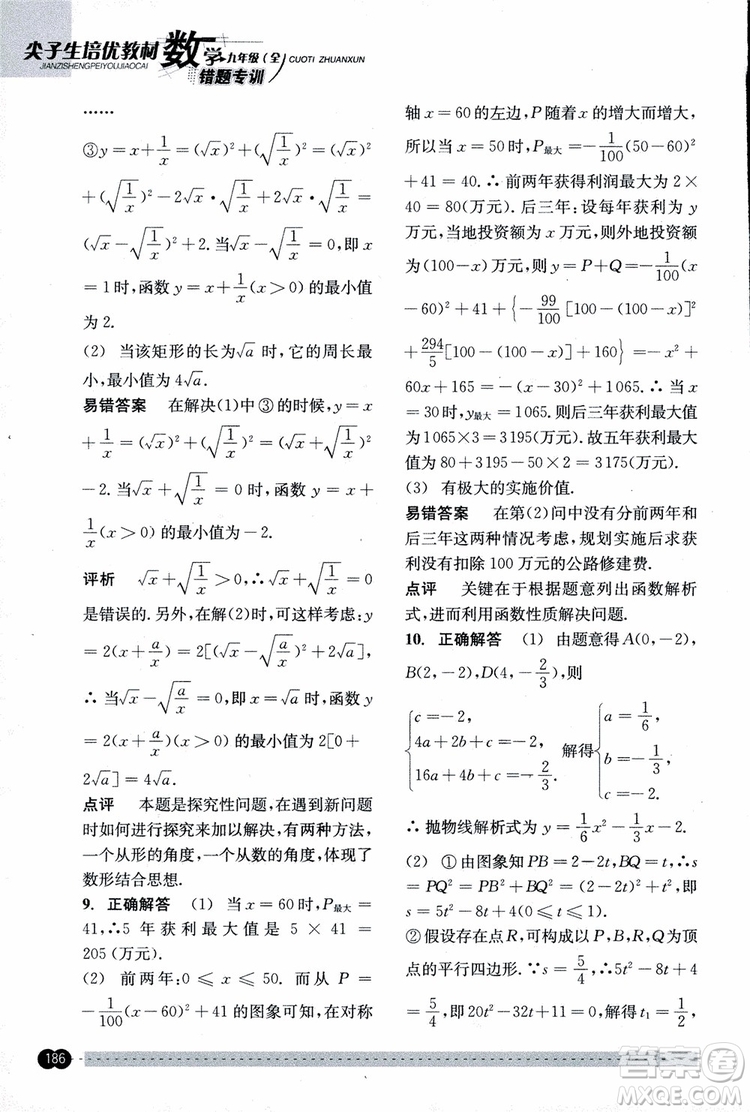 尖子生培优教材
JIANZISHENGPEIYOUJIAOCAI
数学·九年级(全)
CUOTI ZHUANXUN
错题专训
……
③y=x+1/x=(√x)²+(√(1/x))²=(√x)²
+(√(1/x))²-2√x·√(1/x)+2√x·√(1/x)=
(√x-√(1/x))²+2.当√x-√(1/x)=0,即x
=1时,函数y=x+1/x(x>0)的最小值
为2.
(2) 当该矩形的长为√a时,它的周长最
小,最小值为4√a.
易错答案 在解决(1)中③的时候,y=x
+1/x=(√x)²+(√(1/x))²=(√x+√(1/x))²
-2.当√x+√(1/x)=0时,函数y=x+
1/x(x>0)的最小值为-2.
评析 √x+√(1/x)>0,∴√x+√(1/x)=0
是错误的.另外,在解(2)时,可这样考虑:y
=2(x+a/x)=2[(√x-√(a/x))²+2√a],
∴当√x-√(a/x)=0,即x=√a时,函数y
=2(x+a/x)(x>0)的最小值为2[0+
2√a]=4√a.
点评 本题是探究性问题,在遇到新问题
时如何进行探究来加以解决,有两种方法,
一个从形的角度,一个从数的角度,体现了
数形结合思想.
9. 正确解答 (1) 当x=60时,P最大=
41,∴5年获利最大值是5×41=
205(万元).
(2) 前两年:0≤x≤50.而从P=
-1/100(x-60)²+41的图象可知,在对称
轴x=60的左边,P随着x的增大而增大,
所以当x=50时,P最大=-1/100(50-60)²
+41=40.∴前两年获得利润最大为2×
40=80(万元).后三年:设每年获利为y
万元,当地投资额为x万元,则外地投资额
为(100-x)万元,则y=P+Q=-1/100(x
-60)²+41+{-99/100[100-(100-x)]²
+294/5[100-(100-x)]+160}=-x²+
60x+165=-(x-30)²+1065.∴当x
=30时,y最大=1065.则后三年获利最大值
为1065×3=3195(万元).故五年获利最大
值为80+3195-50×2=3175(万元).
(3) 有极大的实施价值.
易错答案 在第(2)问中没有分前两年和
后三年这两种情况考虑,规划实施后求获
利没有扣除100万元的公路修建费.
点评 关键在于根据题意列出函数解析
式,进而利用函数性质解决问题.
10. 正确解答 (1) 由题意得A(0,-2),
B(2,-2),D(4,-2/3),则
{c=-2, 4a+2b+c=-2, 16a+4b+c=-2/3. 解得{a=1/6, b=-1/3, c=-2.
∴抛物线解析式为y=1/6x²-1/3x-2.
(2) ①由图象知PB=2-2t,BQ=t,∴s
=PQ²=PB²+BQ²=(2-2t)²+t²,即
s=5t²-8t+4(0≤t≤1).
②假设存在点R,可构成以P、B、R、Q为顶
点的平行四边形.∵s=5/4,∴5t²-8t+4
=5/4,即20t²-32t+11=0,解得t₁=
186
答案圈
MXQE.COM